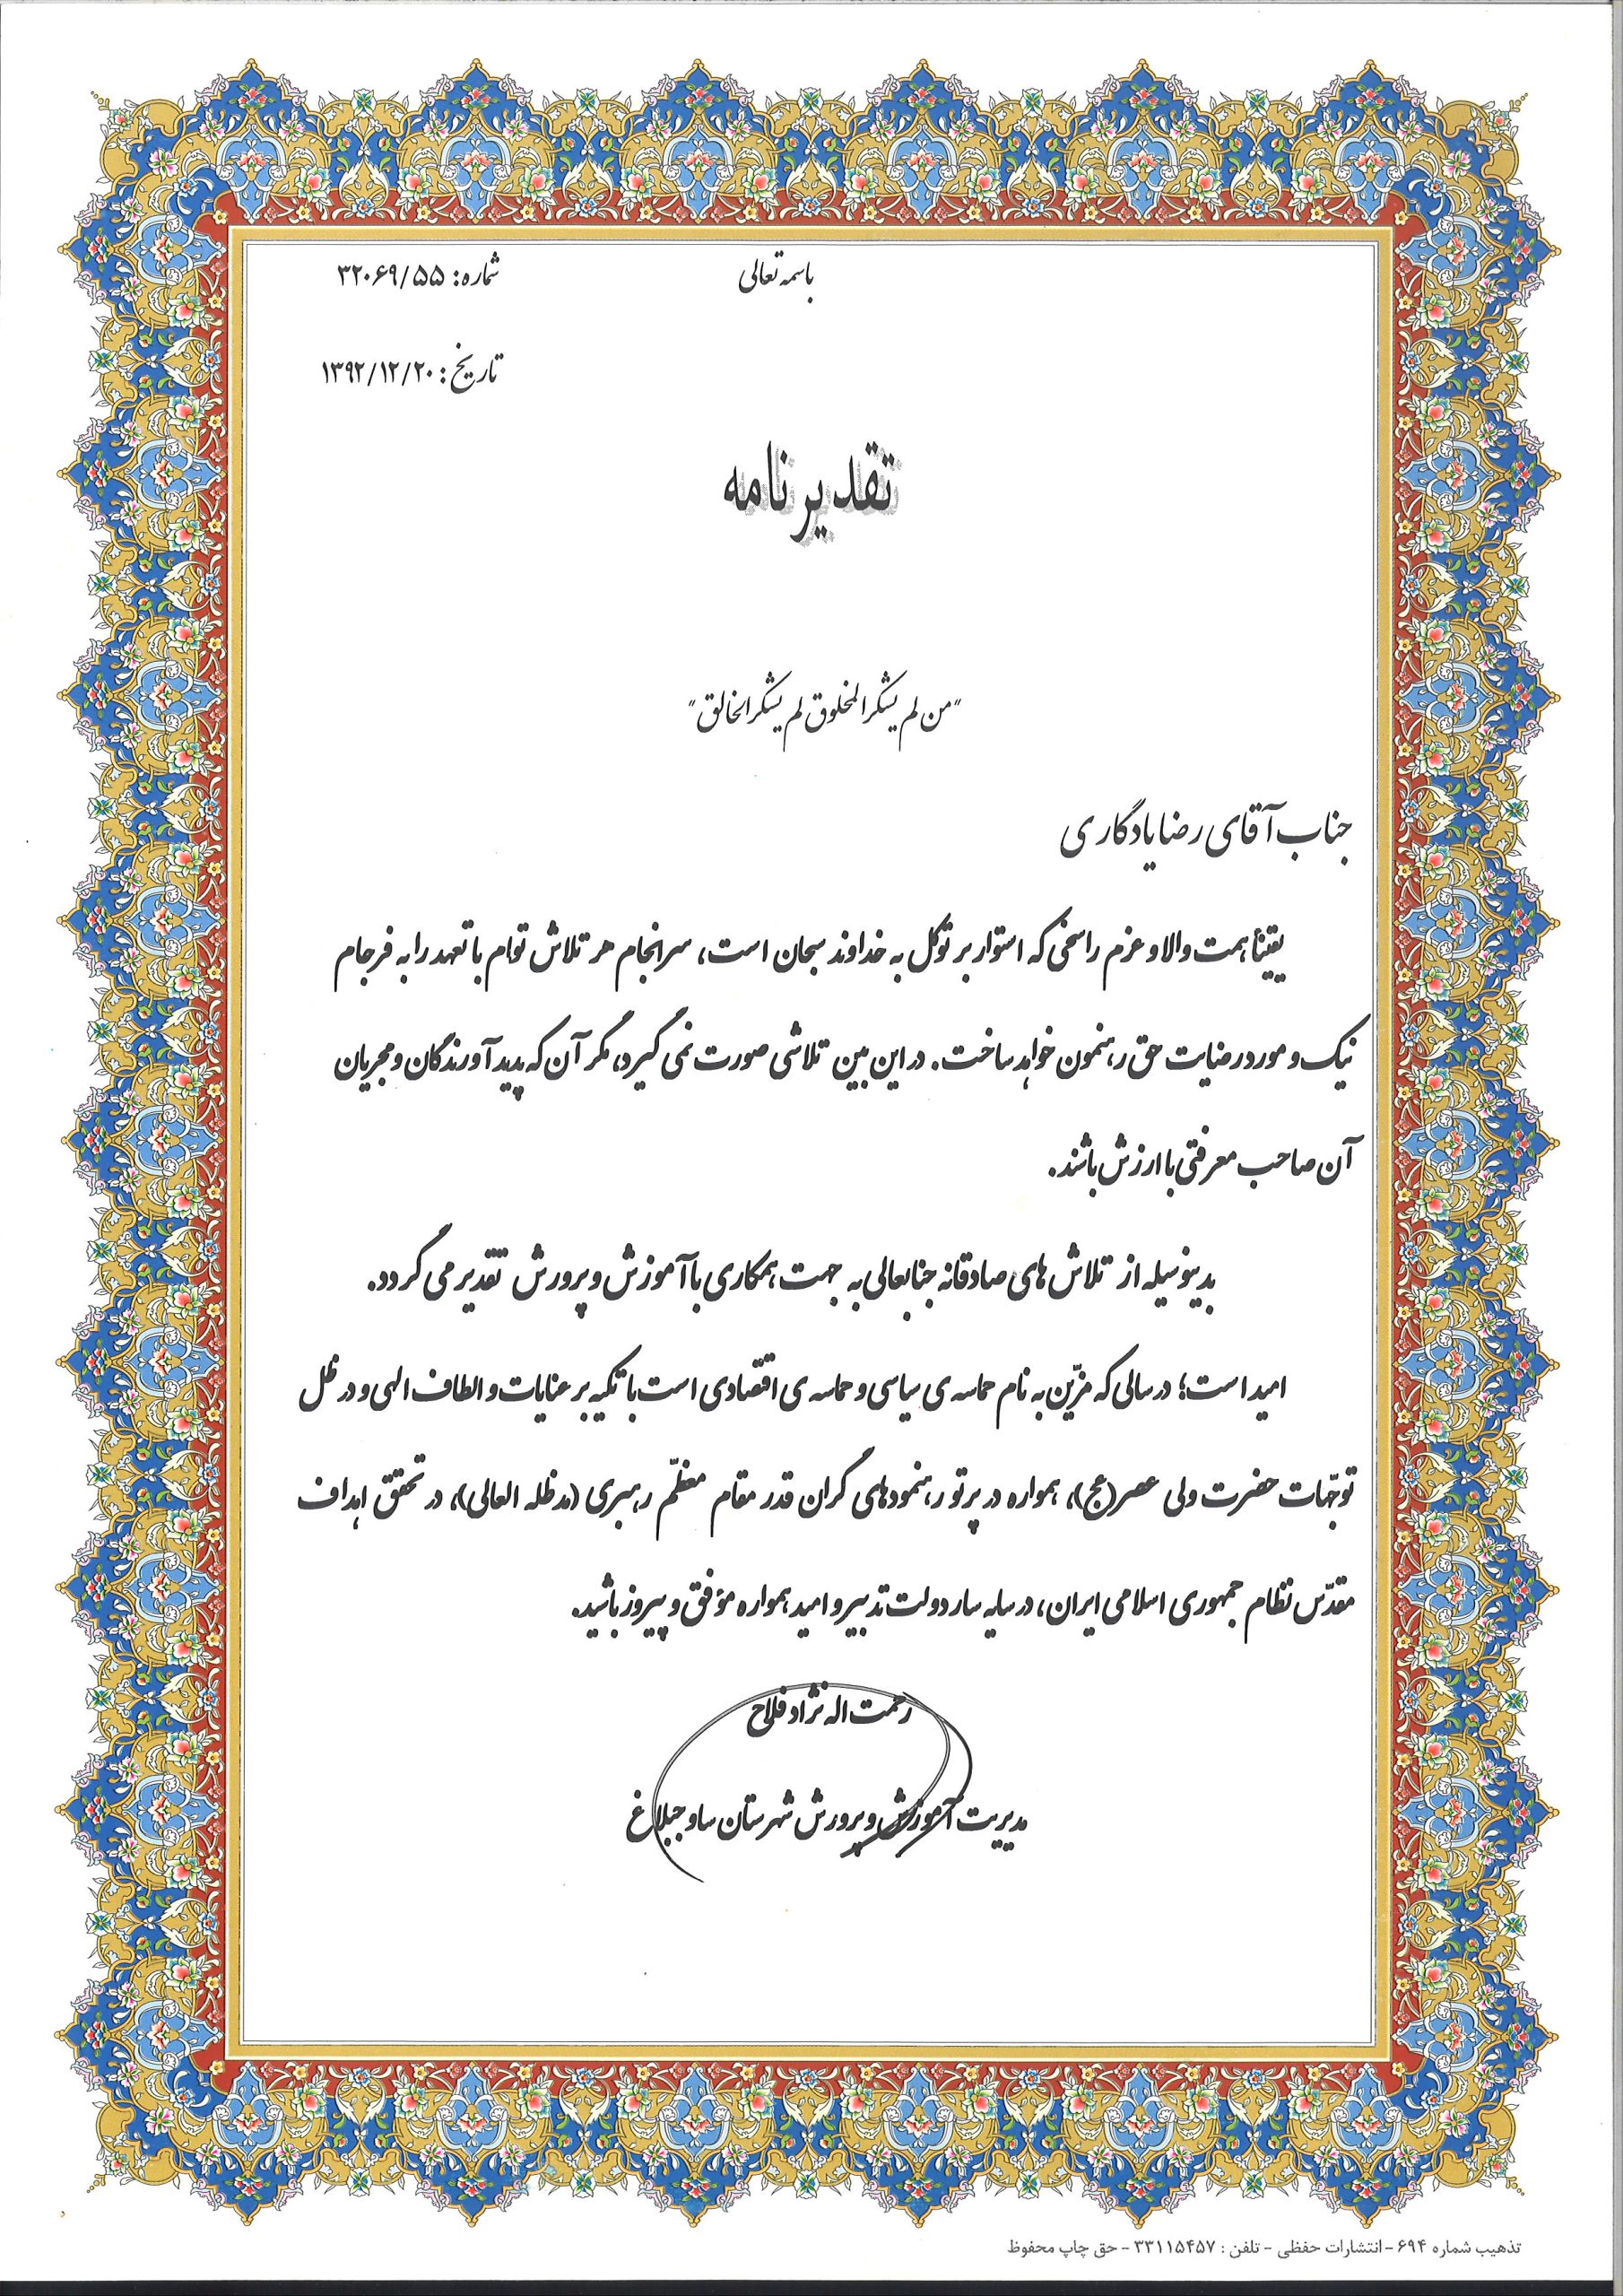 باسمه تعالی
شماره: ۳۲۰۶۹/۵۵
تاریخ: ۱۳۹۲/۱۲/۲۰
تقدیرنامه
"من لم یشکر المخلوق لم یشکر الخالق"
جناب آقای رضا یادگاری
یقیناً همت والا و عزم راسخی که استوار بر توکل به خداوند سبحان است، سرانجام هر تلاش توام با تعهد را به فرجام
نیک و مورد رضایت حق رهنمون خواهد ساخت. در این بین تلاشی صورت نمی گیرد، مگر آن که پدیدآورندگان و مجریان
آن صاحب معرفتی با ارزش باشند.
بدینوسیله از تلاش های صادقانه جنابعالی به جهت همکاری با آموزش و پرورش تقدیر می گردد.
امید است؛ در سالی که مزّین به نام حماسه ی سیاسی و حماسه ی اقتصادی است با تکیه بر عنایات و الطاف الهی و در ظل
توجّهات حضرت ولی عصر(عج)، همواره در پرتو رهنمودهای گران قدر مقام معظّم رهبری (مدظله العالی)، در تحقق اهداف
مقدّس نظام جمهوری اسلامی ایران، در سایه سار دولت تدبیر و امید همواره مؤفق و پیروز باشید.
رحمت اله نژاد فلاح
مدیریت آموزش و پرورش شهرستان ساوجبلاغ
تذهیب شماره ۶۹۴ - انتشارات حفظی - تلفن : ۳۳۱۱۵۴۵۷ - حق چاپ محفوظ